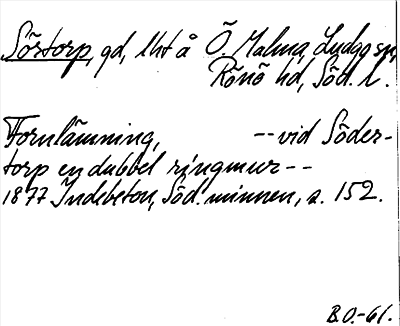 Sörstorp, gd, 1ht å Ö. Malma, Ludgo sn,
Rönö hd, Söd. l.
Fornlämning, -- vid Söder-
torp en dubbel ringmur --
1877 Indebetou, Söd. minnen, s. 152.
B.O.-61.